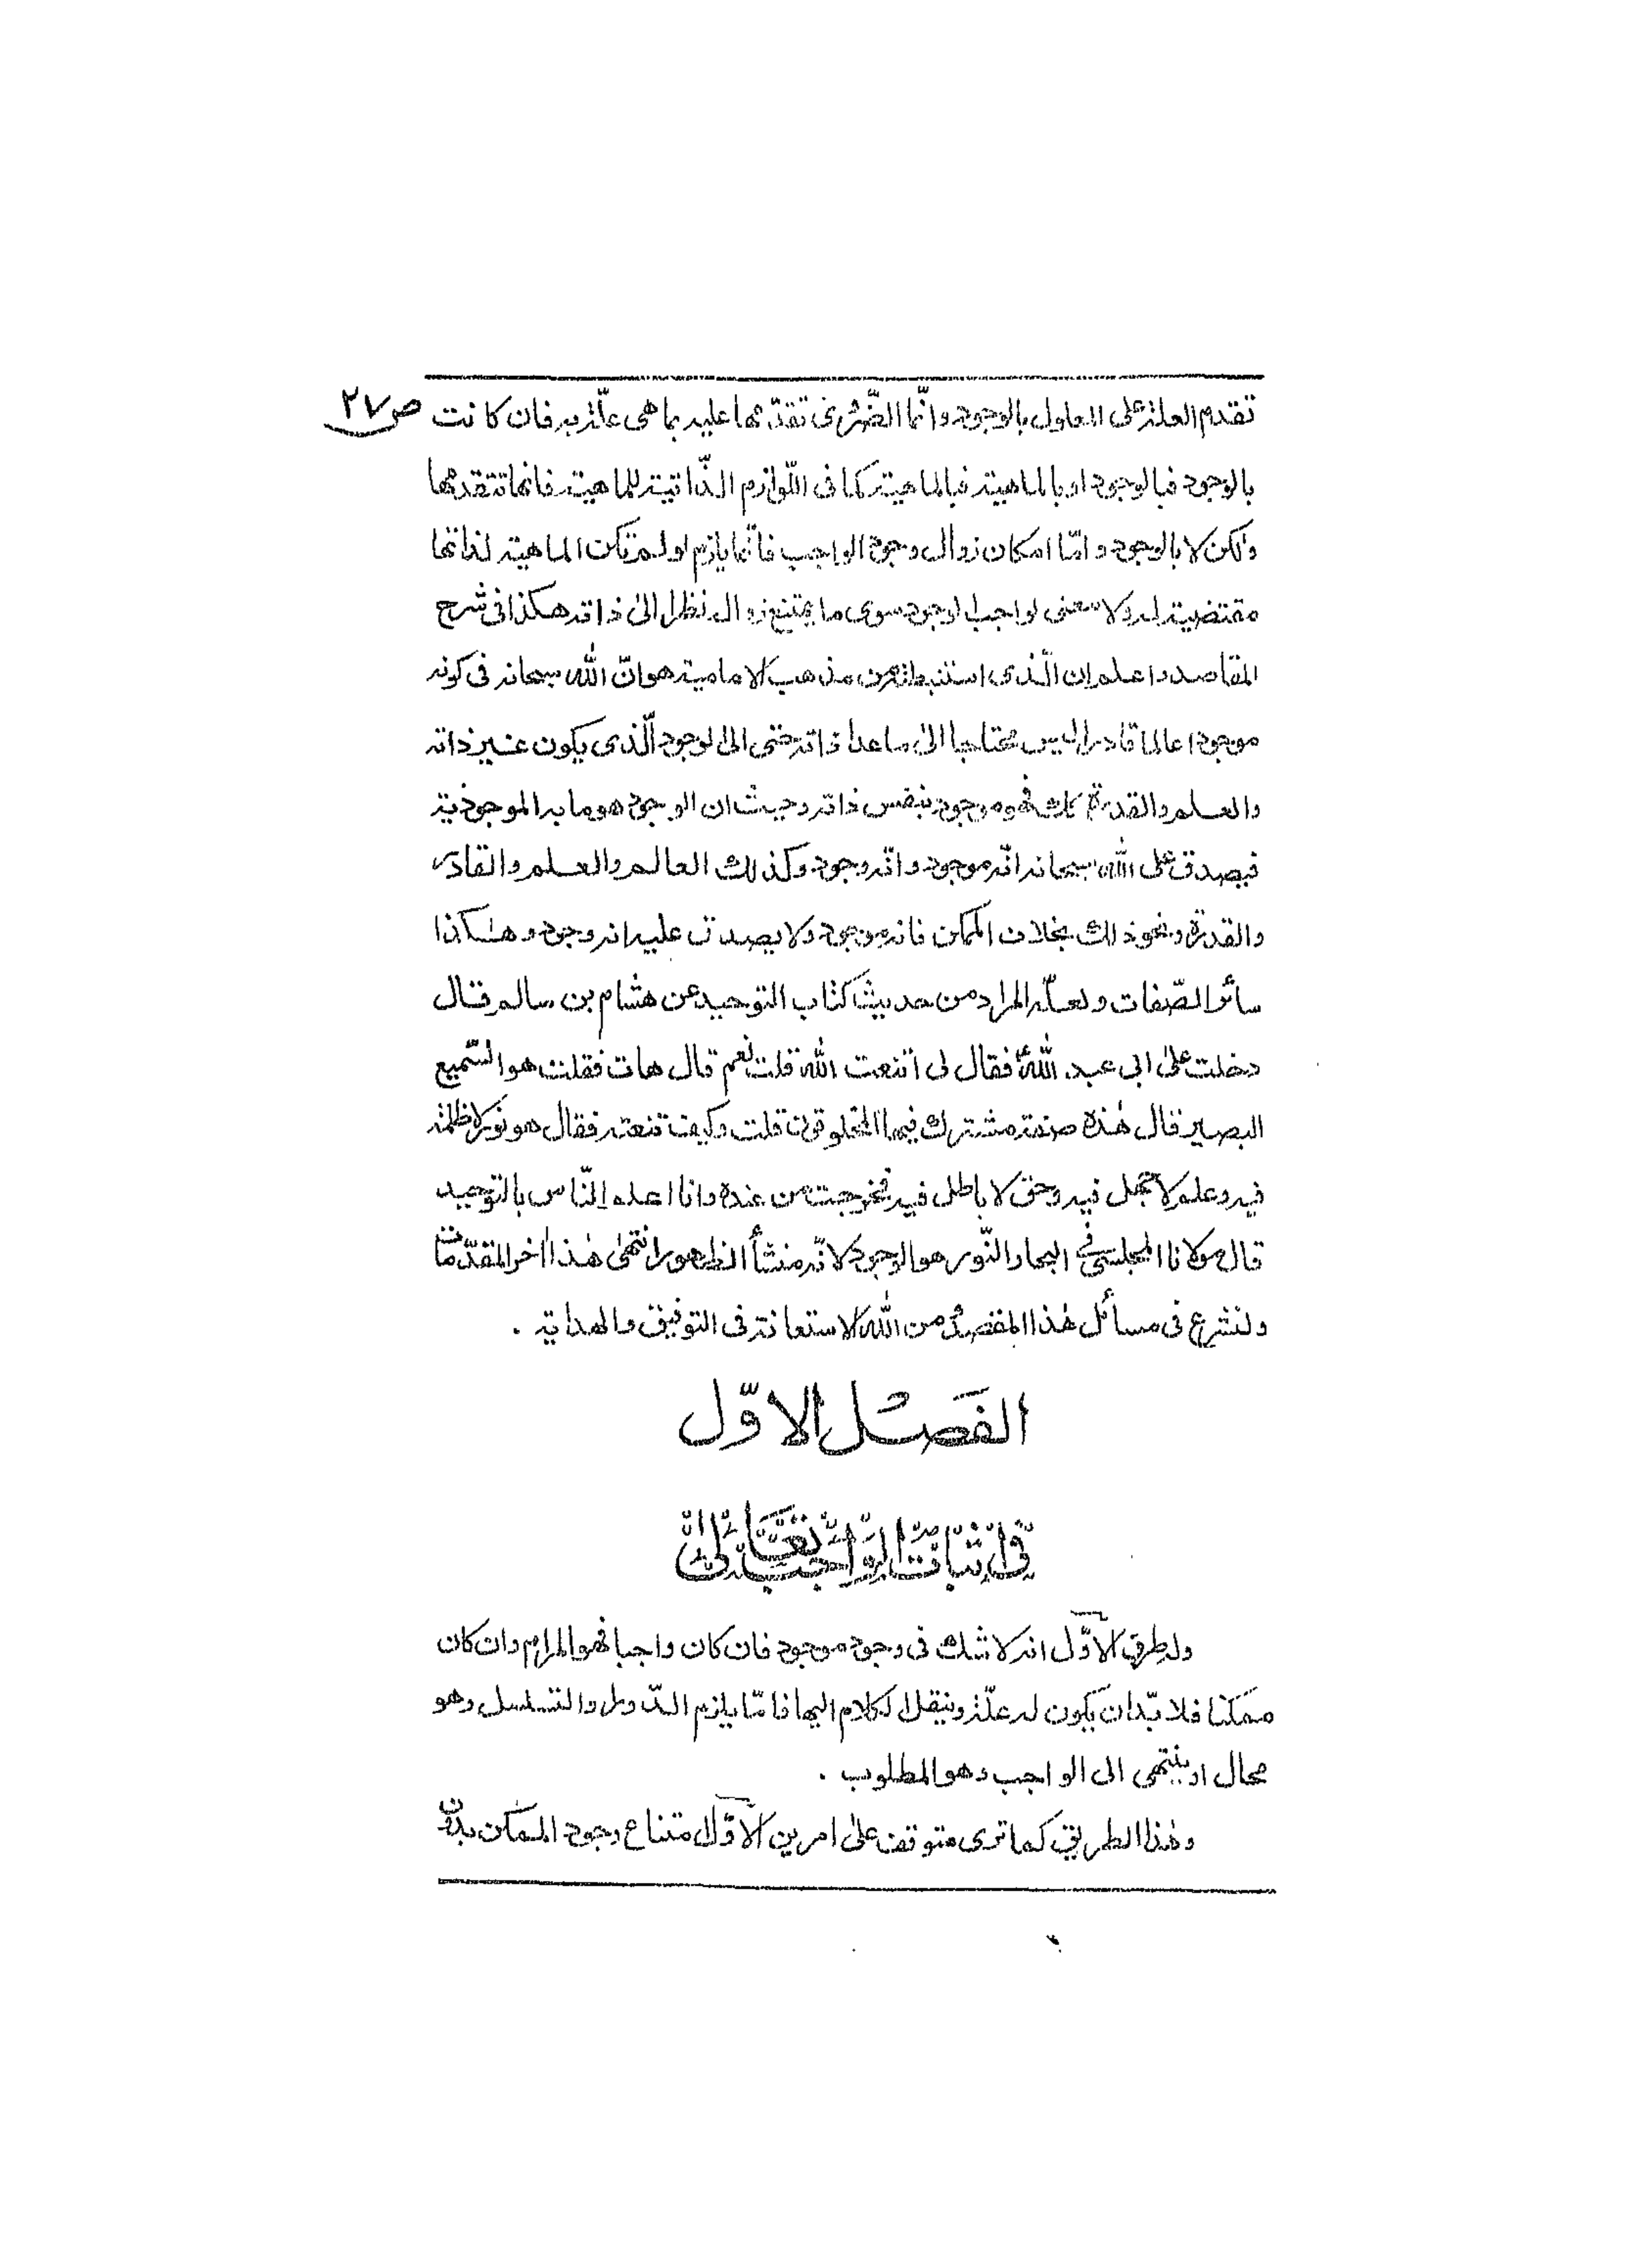 ص٢٧
تقدم العلة على المعلول بالوجود وانّما الضّرورى تقدّمها عليه بما هى علّة به فان كانت
بالوجود فبالوجود او بالماهية فبالماهية كما فى اللّوازم الذّاتية للماهية فانها تتقدمها
ولكن لا بالوجود و امّا امكان زوال وجود الواجب فانّما يلزم لو لم تكن الماهية لذاتها
مقتضية له ولا معنى لواجب الوجود سوى ما يمتنع زوال نظرا الىٰ ذاته هكذا فى شرح
المقاصد واعلم ان الّذى استنبطته من مذهب الامامية هو انّ اللّٰه سبحانه فى كونه
موجودا عالما قادرا ليس محتاجا الىٰ ما عدا ذاته حتى الى الوجود الّذى يكون غير ذاته
والعلم والقدرة كك فهو موجود بنفس ذاته وحيث ان الوجود هو ما به الموجودية
فيصدق على اللّٰه سبحانه انّه موجود وانّه وجود وكذلك العالم والعلم والقادر
والقدرة ونحو ذلك بخلاف الممكن فانه موجود ولا يصدق عليه انه وجود وهٰكذا
سائر الصّفات ولعلّه المراد من حديث كتاب التوحيد عن هشام بن سالم قال
دخلت علىٰ ابى عبد اللّٰهؑ فقال لى اتنعت اللّٰه قلت نعم قال هات فقلت هو السّميع
البصير قال هٰذه صفة مشترك فيها المخلوقون قلت وكيف تنعته فقال هو نور لا ظلمة
فيه وعلم لا جهل فيه وحق لا باطل فيه فخرجت من عنده وانا اعلم النّاس بالتوحيد
قال مولانا المجلسى فى البحار النّور هو الوجود لانّه منشأ الظهور انتهىٰ هٰذا اخر المقدّمات
ولنشرع فى مسائل هٰذا المقصد ومن اللّٰه الاستعانة فى التوفيق والهداية .
الفَصْل الاوّل
فِى اِثبَات الوَاجبْ تعَالىٰ
وله طرق الاوّل انه لا شك فى وجود موجود فان كان واجبا فهو المرام وان كان
ممكنا فلا بّد ان يكون له علّة وينقل الكلام اليها فامّا يلزم الدّور او التسلسل وهو
محال او ينتهى الى الواجب وهو المطلوب .
وهٰذا الطريق كما ترى متوقف علىٰ امرين الاوّل امتناع وجود الممكن بدون